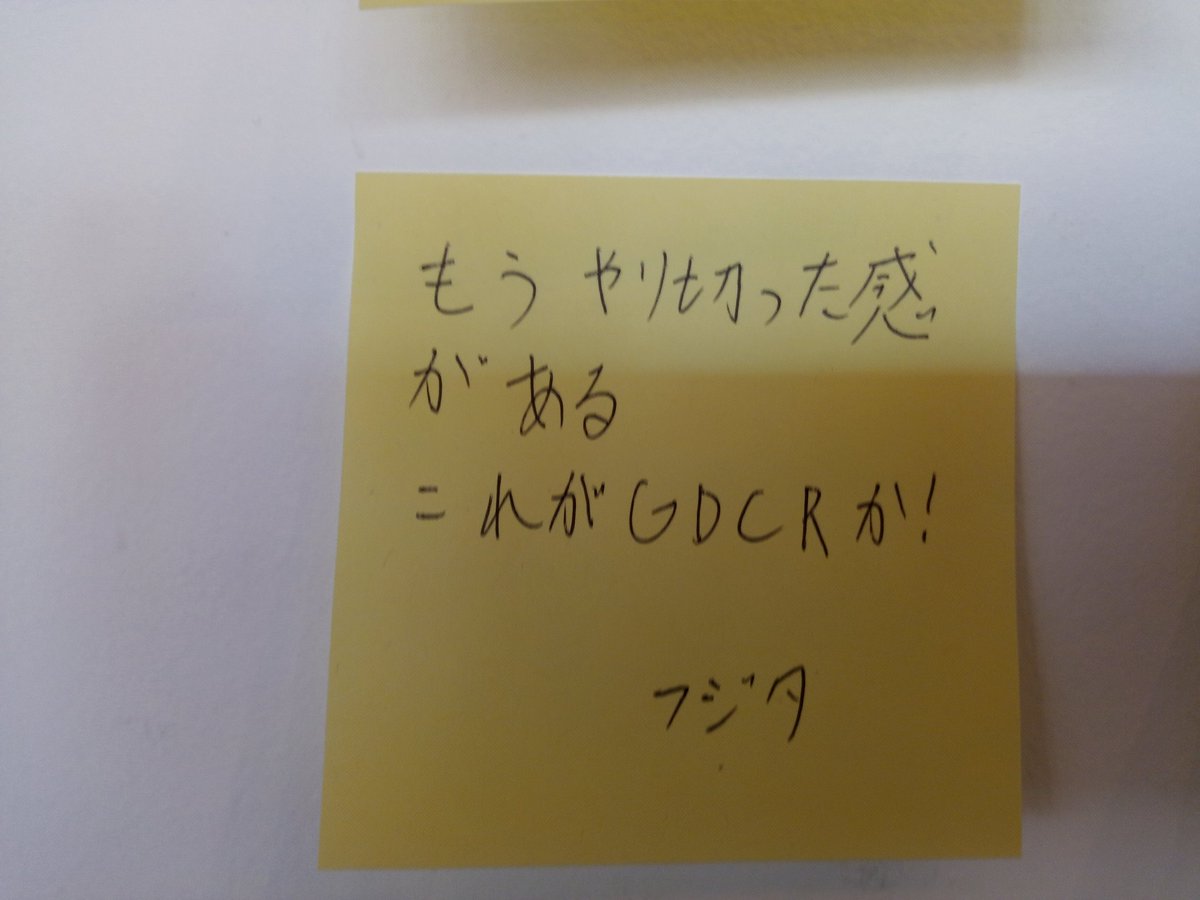 もうやり切った感
がある
これがGDCRか!
フジタ